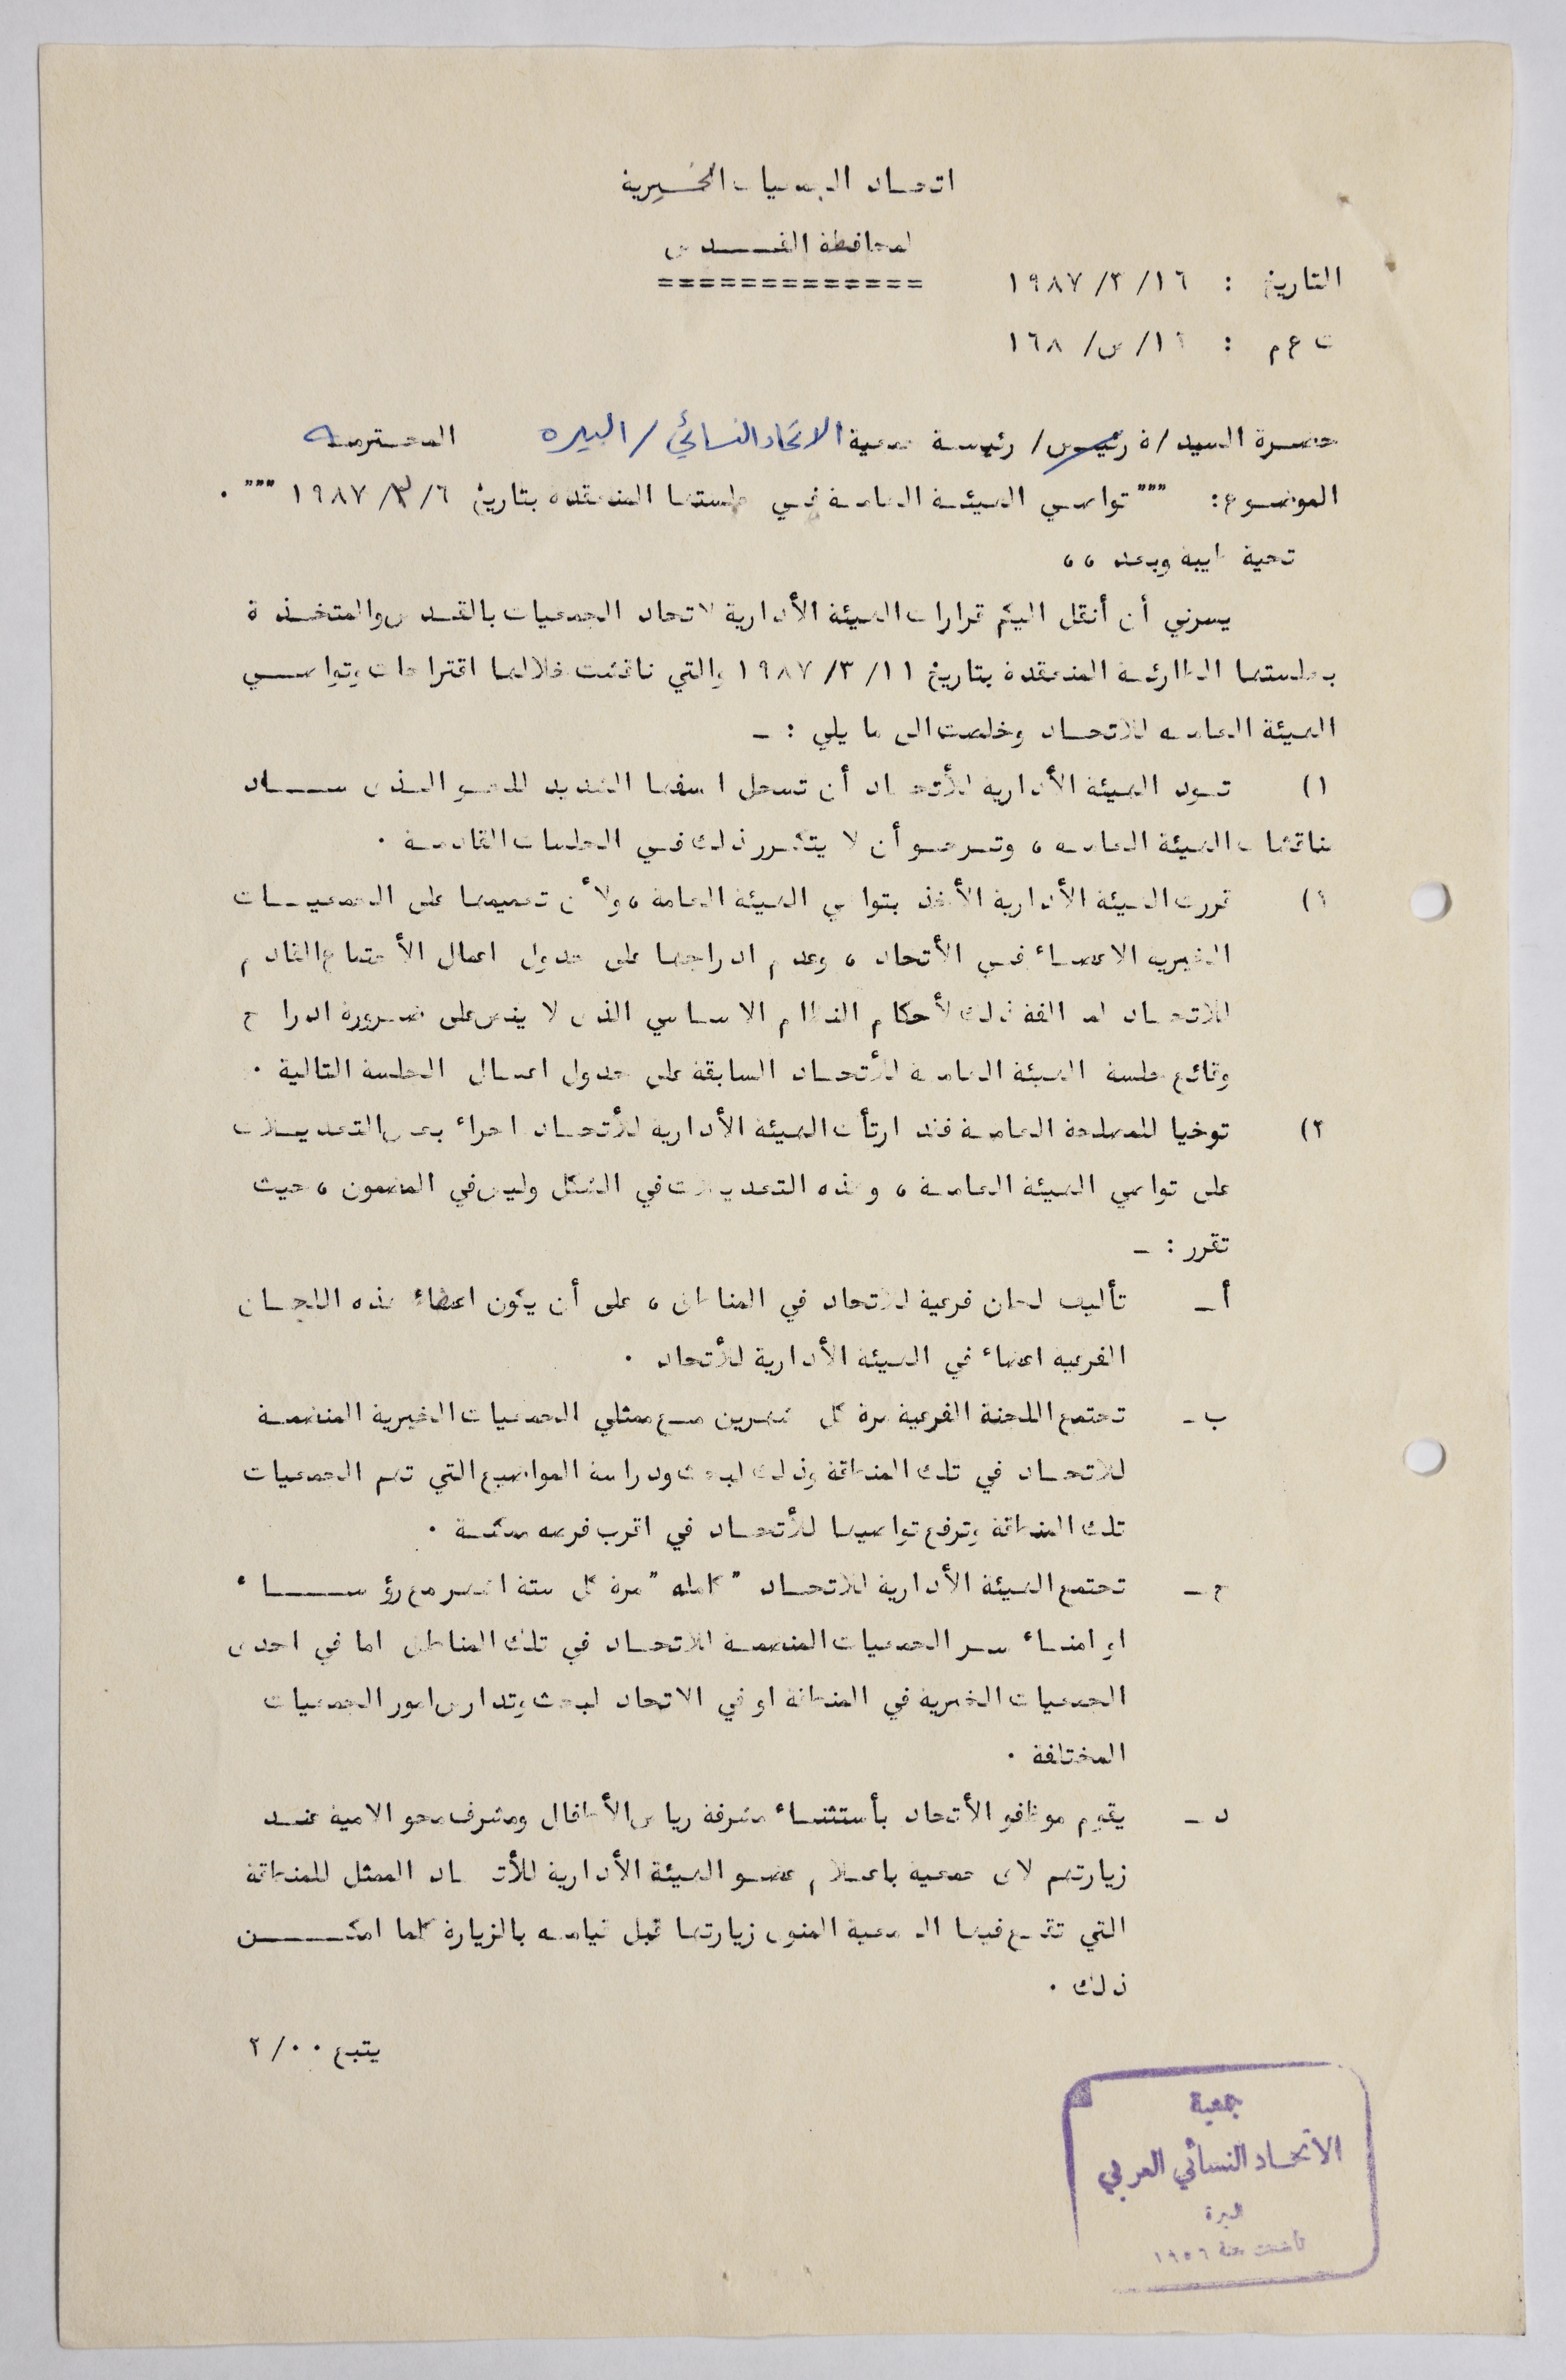 اتحاد الجمعيات الخيرية
لمحافظة القدس
=============
التاريخ : ١٦/ ٣/ ١٩٨٧
ت ع م : ١٦/ س/ ١٦٨
حضرة السيد /ة رئيس/ رئيسة جمعية الاتحاد النسائي / البيره المحترمه
الموضوع: """ تواصي الهيئة العامة في جلستها المنعقدة بتاريخ ٦/ ٣/ ١٩٨٧ """ .
تحية طيبة وبعد ،،
يسرني أن أنقل اليكم قرارات الهيئة الأدارية لاتحاد الجمعيات بالقدس والمتخذة
بجلستها الطارئة المنعقدة بتاريخ ١١/ ٣/ ١٩٨٧ والتي ناقشت خلالها اقتراحات وتواصي
الهيئة العامه للاتحاد وخلصت الى ما يلي : -
١) تود الهيئة الأدارية للأتحاد أن تسجل اسفها الشديد للجو الذى ساد
مناقشات الهيئة العامه ، وترجو أن لا يتكرر ذلك في الجلسات القادمة .
٢) قررت الهيئة الأدارية الأخذ بتواصي الهيئة العامة ، ولأن تعميمها على الجمعيات
الخيريه الاعضاء في الأتحاد ، وعدم ادراجها على جدول اعمال الأجتماع القادم
للاتحاد لمخالفة ذلك لأحكام النظام الاساسي الذى لا ينص على ضرورة ادراج
وقائع جلسة الهيئة العامة للأتحاد السابقة على جدول اعمال الجلسة التالية .
٣) توخيا للمصلحة العامة فقد ارتأت الهيئة الأدارية للأتحاد اجراء بعض التعديلات
على تواصي الهيئة العامة ، وهذه التعديلات في الشكل وليس في المضمون ، حيث
تقرر : -
أ- تأليف لجان فرعية للاتحاد في المناطق ، على أن يكون اعضاء هذه اللجان
الفرعيه اعضاء في الهيئة الأدارية للأتحاد .
ب- تجتمع اللجنة الفرعية مرة كل شهرين مع ممثلي الجمعيات الخيرية المنضمة
للاتحاد في تلك المنطقة وذلك لبحث ودراسة المواضيع التي تهم الجمعيات
تلك المنطقة وترفع تواصيها للأتحاد في اقرب فرصه ممكنة .
ج- تجتمع الهيئة الأدارية للاتحاد " كامله " مرة كل ستة اشهر مع رؤساء
او امناء سر الجمعيات المنضمة للاتحاد في تلك المناطق اما في احدى
الجمعيات الخيرية في المنطقة او في الاتحاد لبحث وتدارس امور الجمعيات
المختلفة .
د- يقوم موظفو الأتحاد بأستثناء مشرفة رياض الأطفال ومشرف محو الامية عند
زيارتهم لاى جمعيه باعلام عضو الهيئة الأدارية للأتحاد الممثل للمنطقة
التي تقع فيها الجمعية المنوى زيارتها قبل قيامه بالزيارة كلما امكن
ذلك .
يتبع ٠٠/ ٢
جمعية
الاتحاد النسائي العربي
البيرة
تأسست سنة ١٩٥٦